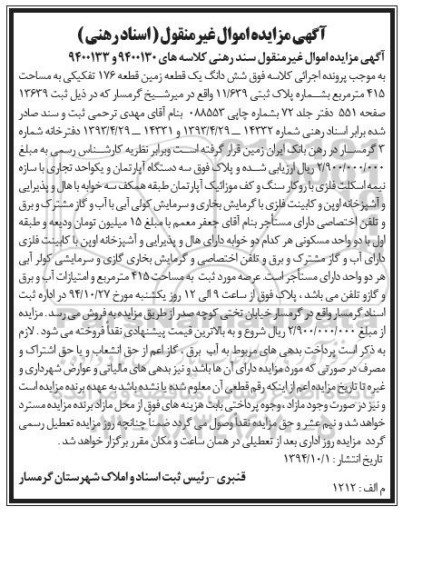 آگهی مزایده اموال غیر منقول ( اسناد رهنی )
آگهی مزایده اموال غیر منقول سند رهنی کلاسه های ۹۴۰۰۱۳۰ و ۹۴۰۰۱۳۳
به موجب پرونده اجرائی کلاسه فوق شش دانگ یک قطعه زمین قطعه ۱۷۶ تفکیکی به مساحت
۴۱۵ مترمربع بشماره پلاک ثبتی ۱۱/۶۳۹ واقع در میرشیخ گرمسار که در ذیل ثبت ۱۳۶۳۹
صفحه ۵۵۱ دفتر جلد ۷۲ بشماره چاپی ۰۸۸۵۵۳ بنام آقای مهدی ترحمی ثبت و سند صادر
شده برابر اسناد رهنی شماره ۱۴۳۳۲ ــ ۱۳۹۳/۴/۲۹ و ۱۴۳۳۱ ــ ۱۳۹۳/۴/۲۹ دفترخانه شماره
۳ گرمسار در رهن بانک ایران زمین قرار گرفته است وبرابر نظریه کارشناس رسمی به مبلغ
۲/۹۰۰/۰۰۰/۰۰۰ ریال ارزیابی شده و پلاک فوق سه دستگاه آپارتمان و یکواحد تجاری با سازه
نیمه اسکلت فلزی با روکار سنگ و کف موزائیک آپارتمان طبقه همکف سه خوابه با هال و پذیرایی
و آشپزخانه اوپن و کابینت فلزی با گرمایش بخاری و سرمایش کولی آبی با آب و گاز مشترک و برق
و تلفن اختصاصی دارای مستأجر بنام آقای جعفر معمم با مبلغ ۱۵ میلیون تومان ودیعه و طبقه
اول با دو واحد مسکونی هر کدام دو خوابه دارای هال و پذیرایی و آشپزخانه اوپن با کابینت فلزی
دارای آب و گاز مشترک و برق و تلفن اختصاصی و گرمایش بخاری گازی و سرمایشی کولر آبی
هر دو واحد دارای مستأجر است. عرصه مورد ثبت به مساحت ۴۱۵ مترمربع و امتیازات آب و برق
و گاز و تلفن می باشد ، پلاک فوق از ساعت ۹ الی ۱۲ روز یکشنبه مورخ ۹۴/۱۰/۲۷ در اداره ثبت
اسناد گرمسار واقع در گرمسار خیابان تختی کوچه صدر از طریق مزایده به فروش می رسد. مزایده
از مبلغ ۲/۹۰۰/۰۰۰/۰۰۰ ریال شروع و به بالاترین قیمت پیشنهادی نقداً فروخته می شود . لازم
به ذکر است پرداخت بدهی های مربوط به آب برق ، گاز اعم از حق انشعاب و یا حق اشتراک و
مصرف در صورتی که مورد مزایده دارای آن ها باشد و نیز بدهی های مالیاتی و عوارض شهرداری و
غیره تا تاریخ مزایده اعم از اینکه رقم قطعی آن معلوم شده یا نشده باشد به عهده برنده مزایده است
و نیز در صورت وجود مازاد ، وجوه پرداختی بابت هزینه های فوق از محل مازاد برنده مزایده مسترد
خواهد شد و نیم عشر و حق مزایده نقداً وصول می گردد ضمناً چنانچه روز مزایده تعطیل رسمی
گردد مزایده روز اداری بعد از تعطیلی در همان ساعت و مکان مقرر برگزار خواهد شد .
تاریخ انتشار : ۱۳۹۴/۱۰/۱
قنبری -رئیس ثبت اسناد و املاک شهرستان گرمسار
م الف : ۱۲۱۲